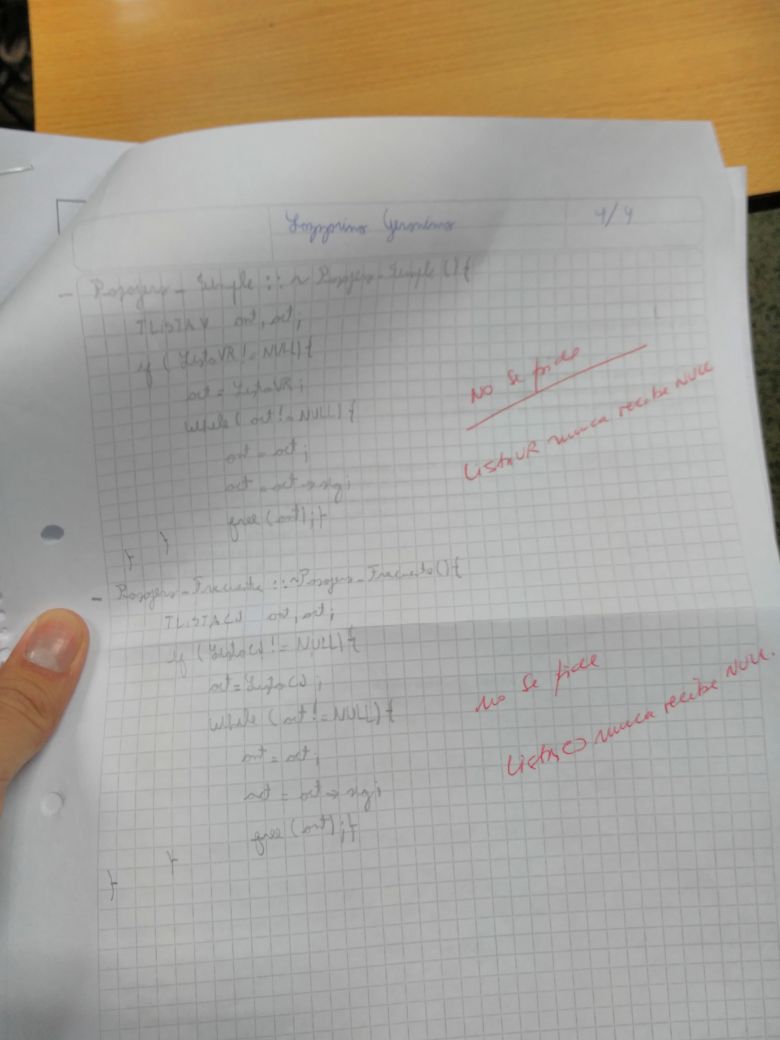 Lazzarino Geronimo 4/4
- Pasajero_Simple :: ~ Pasajero_Simple () {
TLISTAV ant, act;
if (ListaVR != NULL) {
act = ListaVR;
while (act != NULL) {
ant = act;
act = act → sig;
free (ant); }
} }
No se pide
ListaVR nunca recibe NULL
- Pasajero_Frecuente :: ~ Pasajero_Frecuente () {
ant, act;
if ( != NULL) {
act = ;
while (act != NULL) {
ant = act;
act = act → sig;
free (ant); }
}
}
No se pide
nunca recibe NULL.